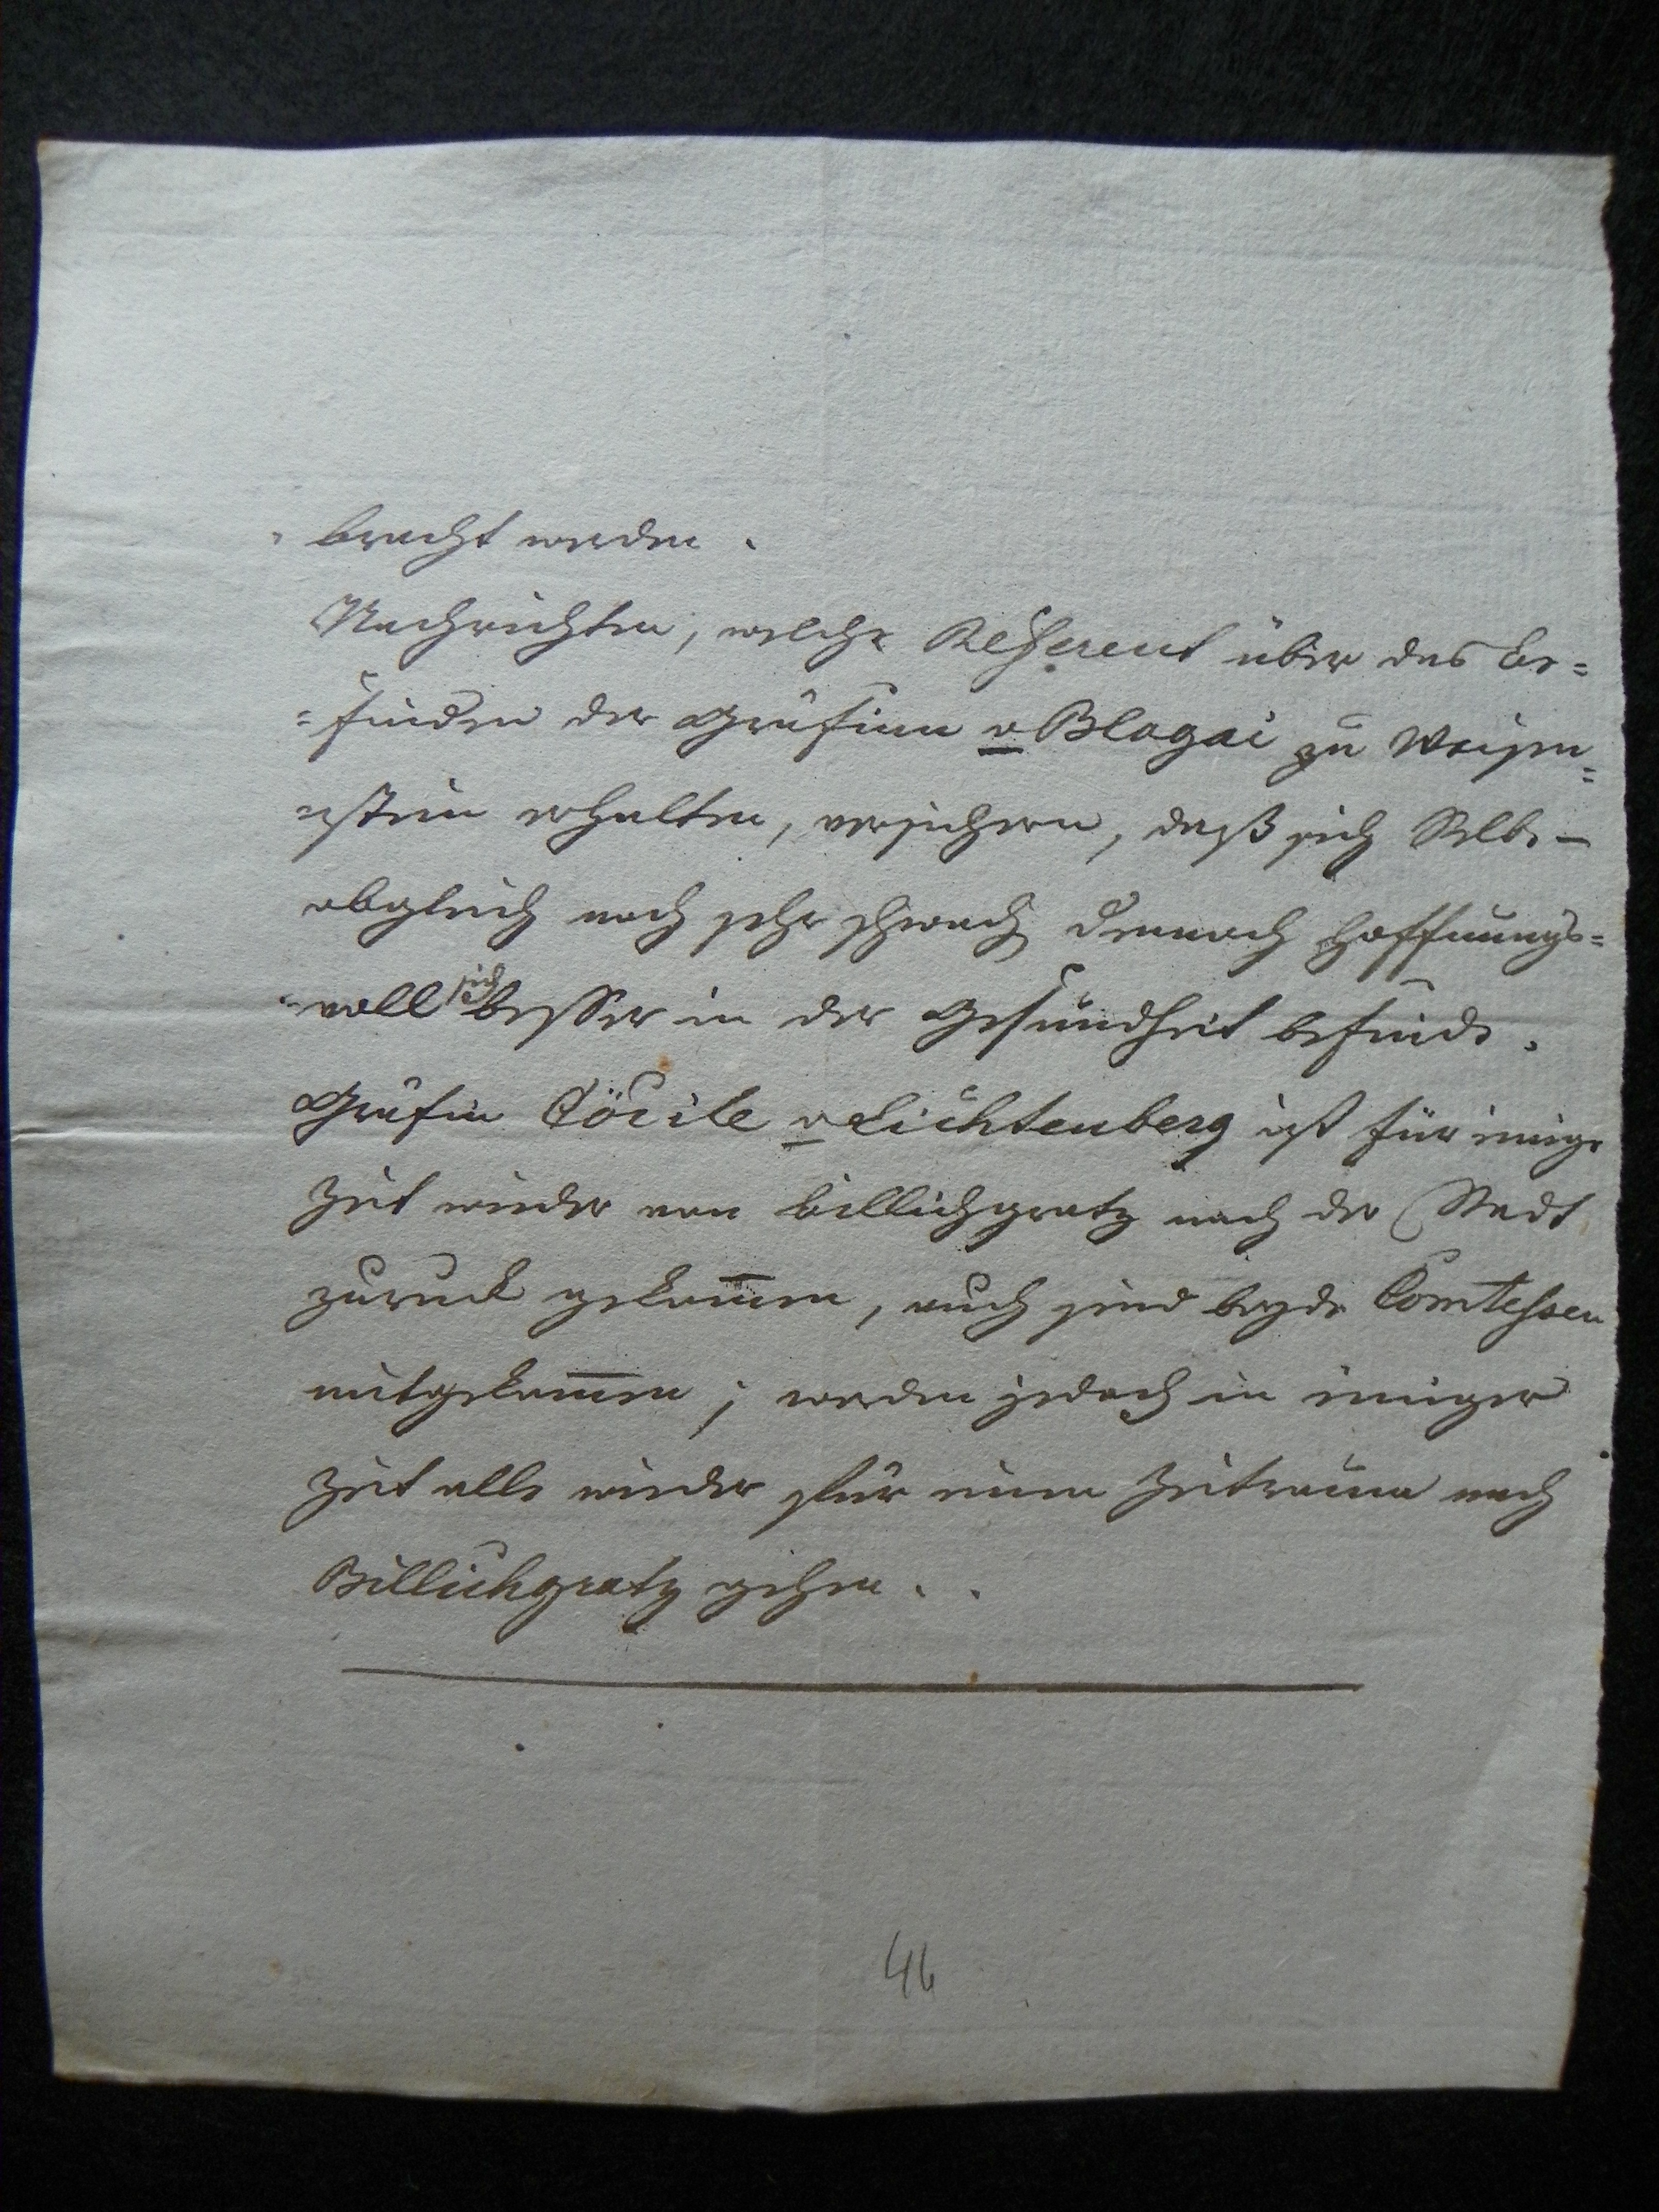 - bracht werden.
Nachrichten, welche Referent über das Be=
=finden der Gräfinn v Blagai zu Weisen=
=stein erhalten, versichern, daß sich Selbe –
obgleich noch sehr schwach dennoch hoffnungs=
-voll sich besser in der Gesundheit befinde.
Gräfin Cöcile v Lichtenberg ist für einige
Zeit wieder von Billichgratz nach der Stadt
zuruck gekom̅en, auch sind beyde Comtessen
mitgekom̅en; werden jedoch in einiger
Zeit alle wieder für einen Zeitraum nach
Billichgratz gehen..
46